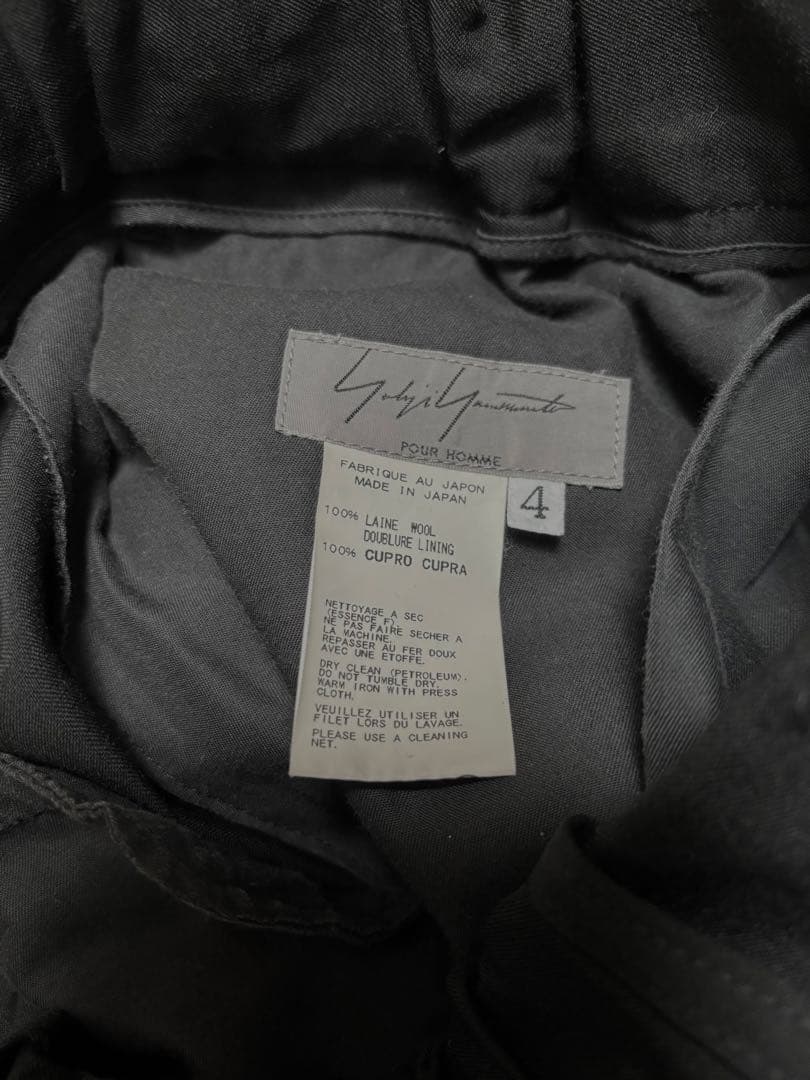 Yohji Yamamoto
POUR HOMME
FABRIQUE AU JAPON
MADE IN JAPAN
4
100% LAINE WOOL
DOUBLURE LINING
100% CUPRO CUPRA
NETTOYAGE A SEC
(ESSENCE F).
NE PAS FAIRE SECHER A
LA MACHINE.
REPASSER AU FER DOUX
AVEC UNE ETOFFE.
DRY CLEAN (PETROLEUM).
DO NOT TUMBLE DRY.
WARM IRON WITH PRESS
CLOTH.
VEUILLEZ UTILISER UN
FILET LORS DU LAVAGE.
PLEASE USE A CLEANING
NET.